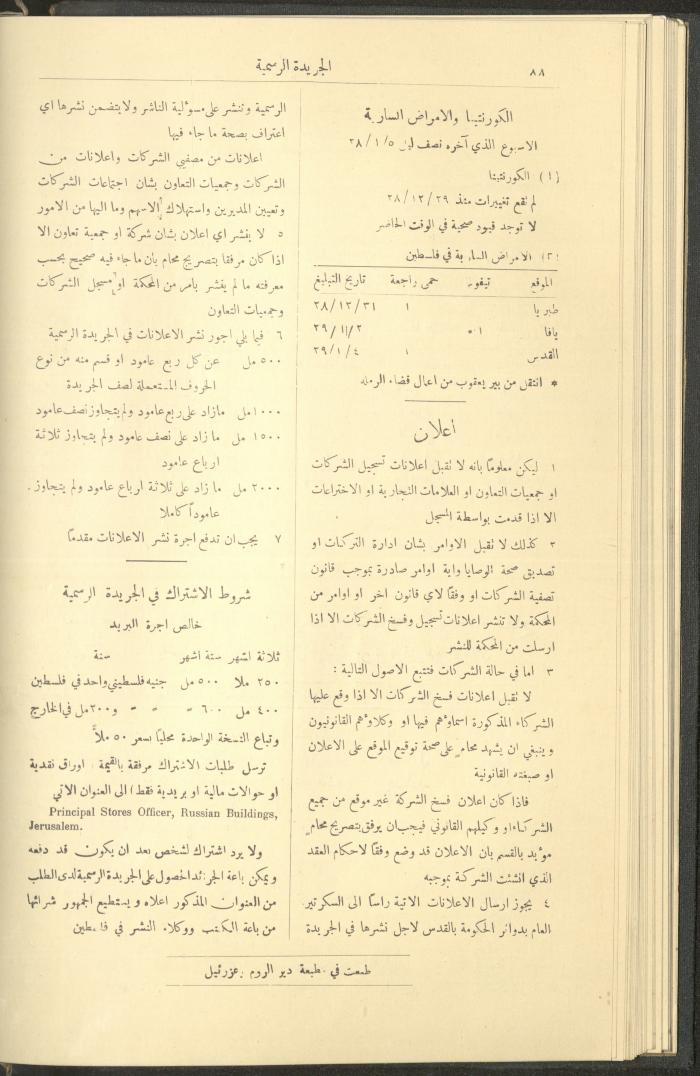 ٨٨
الجريدة الرسمية
الكورنتينا والامراض السارية
الاسبوع الذي آخره نصف ليل ٥ /١ /٢٨
(١) الكورنتينا
لم تقع تغييرات منذ ٢٩ /١٢ /٢٨
لا توجد قيود صحية في الوقت الحاضر
(٢) الامراض السارية في فلسطين
الموقع تيفوس حمى راجعة تاريخ التبليغ
طبريا ١ ٣١ /١٢ /٢٨
يافا ١* ٢ /١ /٢٩
القدس ١ ٤ /١ /٢٩
* انتقل من بير يعقوب من اعمال قضاء الرملة
اعلان
١ ليكن معلوماً بانه لا تقبل اعلانات تسجيل الشركات
او جمعيات التعاون او العلامات التجارية او الاختراعات
الا اذا قدمت بواسطة المسجل
٢ كذلك لا تقبل الاوامر بشان ادارة التركات او
تصديق صحة الوصايا واية اوامر صادرة بموجب قانون
تصفية الشركات او وفقاً لاي قانون اخر او اوامر من
المحكمة ولا تنشر اعلانات تسجيل وفسخ الشركات الا اذا
ارسلت من المحكمة للنشر
٣ اما في حالة الشركات فتتبع الاصول التالية :
لا تقبل اعلانات فسخ الشركات الا اذا وقع عليها
الشركاء المذكورة اسماؤهم فيها او وكلاؤهم القانونيون
وينبغي ان يشهد محام على صحة توقيع الموقع على الاعلان
او صبغته القانونية
فاذا كان اعلان فسخ الشركة غير موقع من جميع
الشركاء او وكيلهم القانوني فيجب ان يرفق بتصريح محام
مؤيد بالقسم بان الاعلان قد وضع وفقاً لاحكام العقد
الذي انشئت الشركة بموجبه
٤ يجوز ارسال الاعلانات الاتية راساً الى السكرتير
العام بدوائر الحكومة بالقدس لاجل نشرها في الجريدة
الرسمية وتنشر على مسؤلية الناشر ولا يتضمن نشرها اي
اعتراف بصحة ما جاء فيها
اعلانات من مصفيي الشركات واعلانات من
الشركات وجمعيات التعاون بشان اجتماعات الشركات
وتعيين المديرين واستهلاك الاسهم وما اليها من الامور
٥ لا ينشر اي اعلان بشان شركة او جمعية تعاون الا
اذا كان مرفقا بتصريح محام بأن ما جاء فيه صحيح بحسب
معرفته ما لم ينشر بامر من المحكمة او مسجل الشركات
وجمعيات التعاون
٦ فيما يلي اجور نشر الاعلانات في الجريدة الرسمية
٥٠٠ مل عن كل ربع عامود او قسم منه من نوع
الحروف المستعملة لصف الجريدة
١٠٠٠ مل مازاد على ربع عامود ولم يتجاوز نصف عامود
١٥٠٠ مل ما زاد على نصف عامود ولم يتجاوز ثلاثة
ارباع عامود
٢٠٠٠ مل ما زاد على ثلاثة ارباع عامود ولم يتجاوز
عاموداً كاملا
٧ يجب ان تدفع اجرة نشر الاعلانات مقدماً
شروط الاشتراك في الجريدة الرسمية
خالص اجرة البريد
ثلاثة اشهر ستة اشهر سنة
٢٥٠ ملا ٥٠٠ مل جنيه فلسطيني واحد في فلسطين
٤٠٠ مل ٦٠٠ " " " و٢٠٠ مل في الخارج
وتباع النسخة الواحدة محلياً بسعر ٥٠ ملاً
ترسل طلبات الاشتراك مرفقة بالقيمة اوراق نقدية
او حوالات مالية او بريدية فقط) الى العنوان الاتي
Principal Stores Officer, Russian Buildings,
Jerusalem.
ولا يرد اشتراك لشخص بعد ان يكون قد دفعه
ويمكن باعة الجرائد الحصول على الجريدة الرسمية لدى الطلب
من العنوان المذكور اعلاه ويستطيع الجمهور شرائها
من باعة الكتب ووكلاء النشر في فلسطين
طبعت في مطبعة دير الروم بعزرئيل